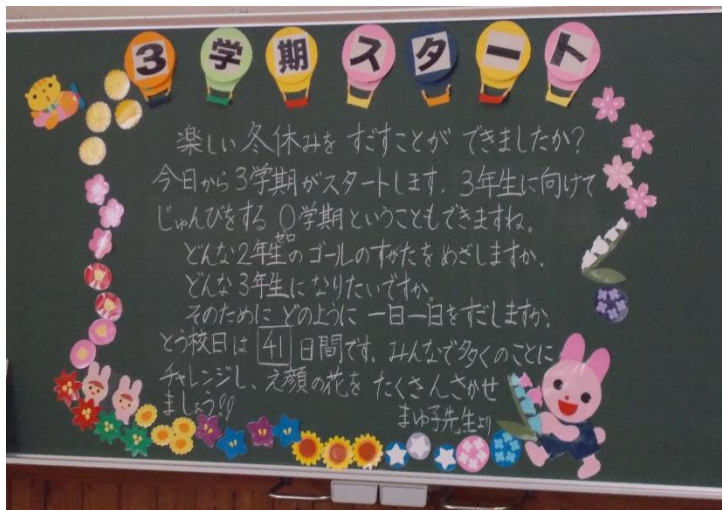 3学期スタート
楽しい冬休みをすごすことができましたか?
今日から3学期がスタートします。3年生に向けて
じゅんびをする0学期ということもできますね。
ゼロ
どんな2年生のゴールのすがたをめざしますか。
どんな3年生になりたいですか。
そのためにどのように一日一日をすごしますか。
とう校日は41日間です。みんなで多くのことに
チャレンジし、え顔の花をたくさんさかせ
ましょう!!
まゆ子先生より